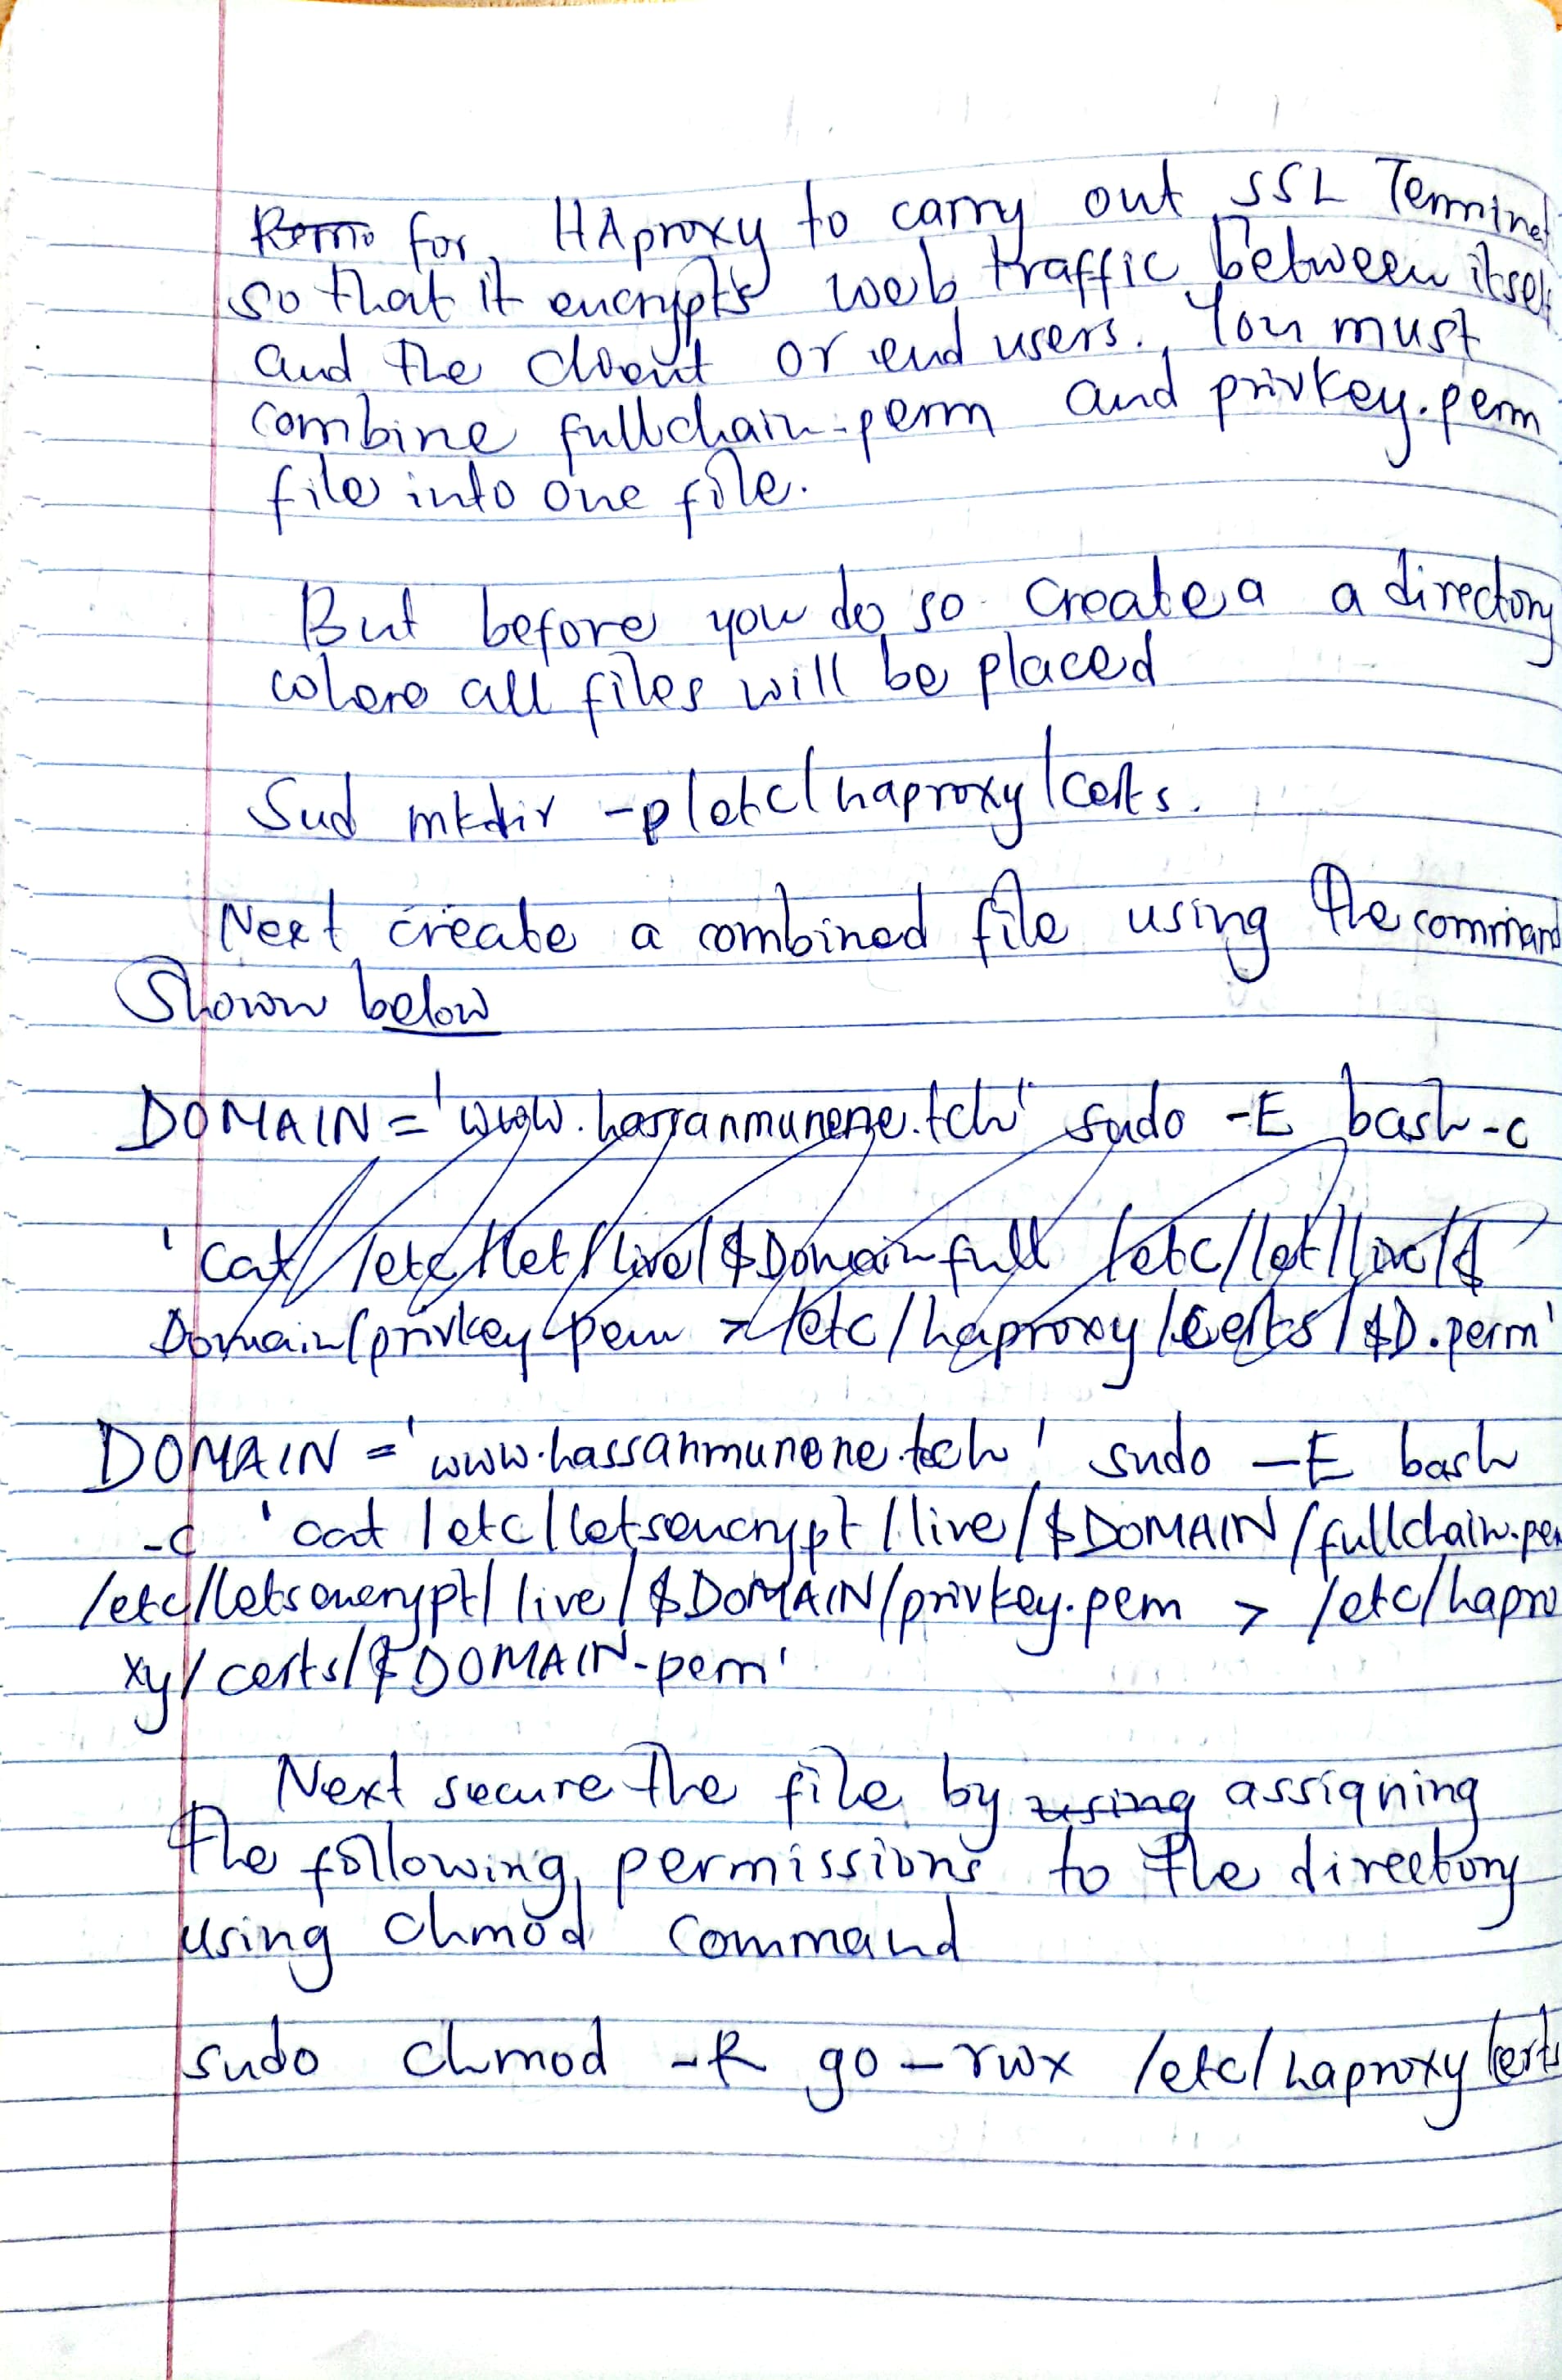 for HAproxy to carry out SSL Terminat
so that it encrypts web traffic between itself
and the client or end users. You must
combine fullchain.perm and privkey.perm
file into one file.
But before you do so create a a directory
where all files will be placed
Sud mkdir -p/etc/haproxy/certs.
Next create a combined file using the command
Shown below
DOMAIN='www.hassanmunene.tch' sudo -E bash -c
'cat /etc/let/live/$Domain full /etc/let/live/$
Domain/privkey pem > /etc/haproxy/certs/$D.perm'
DOMAIN='www.hassanmunene.tech' sudo -E bash
-c 'cat /etc/letsencrypt/live/$DOMAIN/fullchain.pem
/etc/letsencrypt/live/$DOMAIN/privkey.pem > /etc/hapro
xy/certs/$DOMAIN.pem'
Next secure the file by using assigning
the following permissions to the directory
using chmod command
sudo chmod -R go-rwx /etc/haproxy/certs